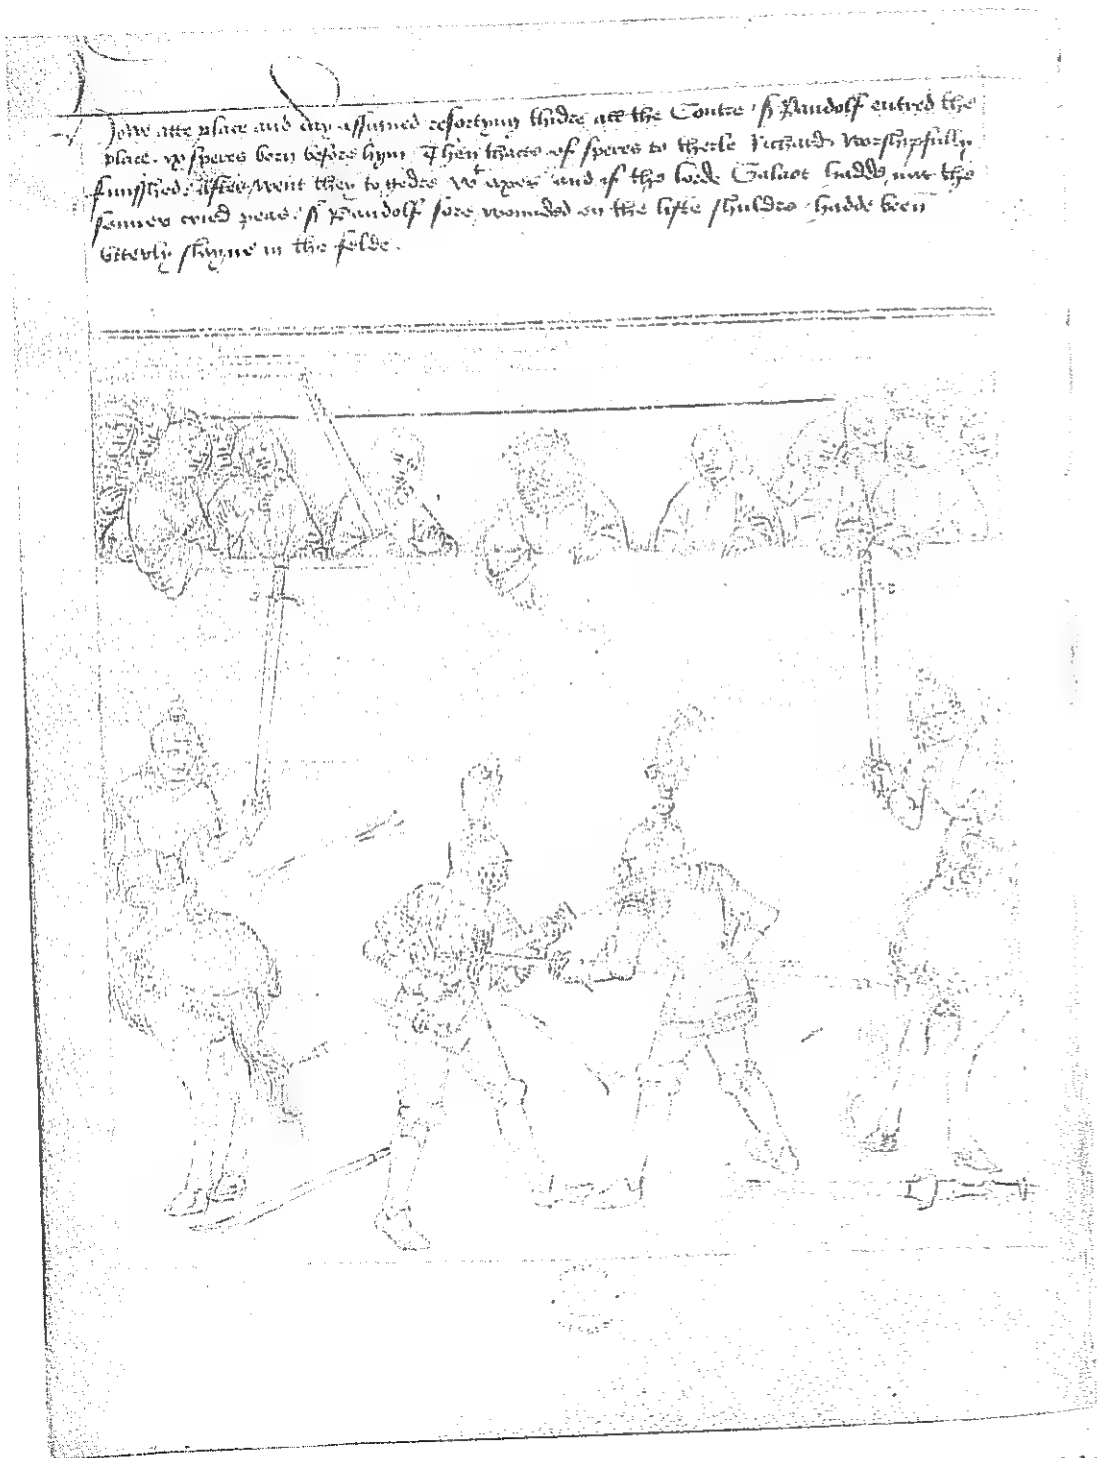 Howe atte place and day assigned resortyng thidre all the Contre · sr Pandolf entred the
place · ix speres born before hym · Then thacte of speres to therle Richard worshipfully
fynisshed · after went they togedre wt axes · and if the lorde Galaot hadde nat the
sonner cried peas · sr Pandolf sore wounded on the lifte shuldre · hadde been
utterly slayne in the felde ·